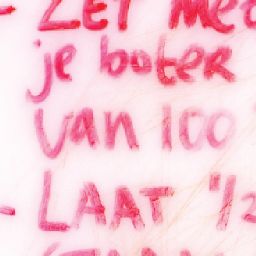 - ZET mee
je boter
van 100
- LAAT '/2